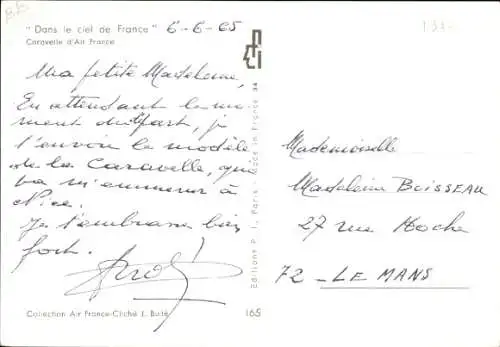 "Dans le ciel de France" 6-6-65
Caravelle d'Air France
Ma petite Madeleine,
En attendant le mo-
ment du départ, je
t'envoie le modèle
de la Caravelle, qui
va m'emmener à
Nice.
Je t'embrasse bien
fort.
Collection Air France-Cliché J. Butté
165
Editions P. I. Paris - Made in France
Mademoiselle
Madeleine BOISSEAU
27 rue Hoche
72 - LE MANS